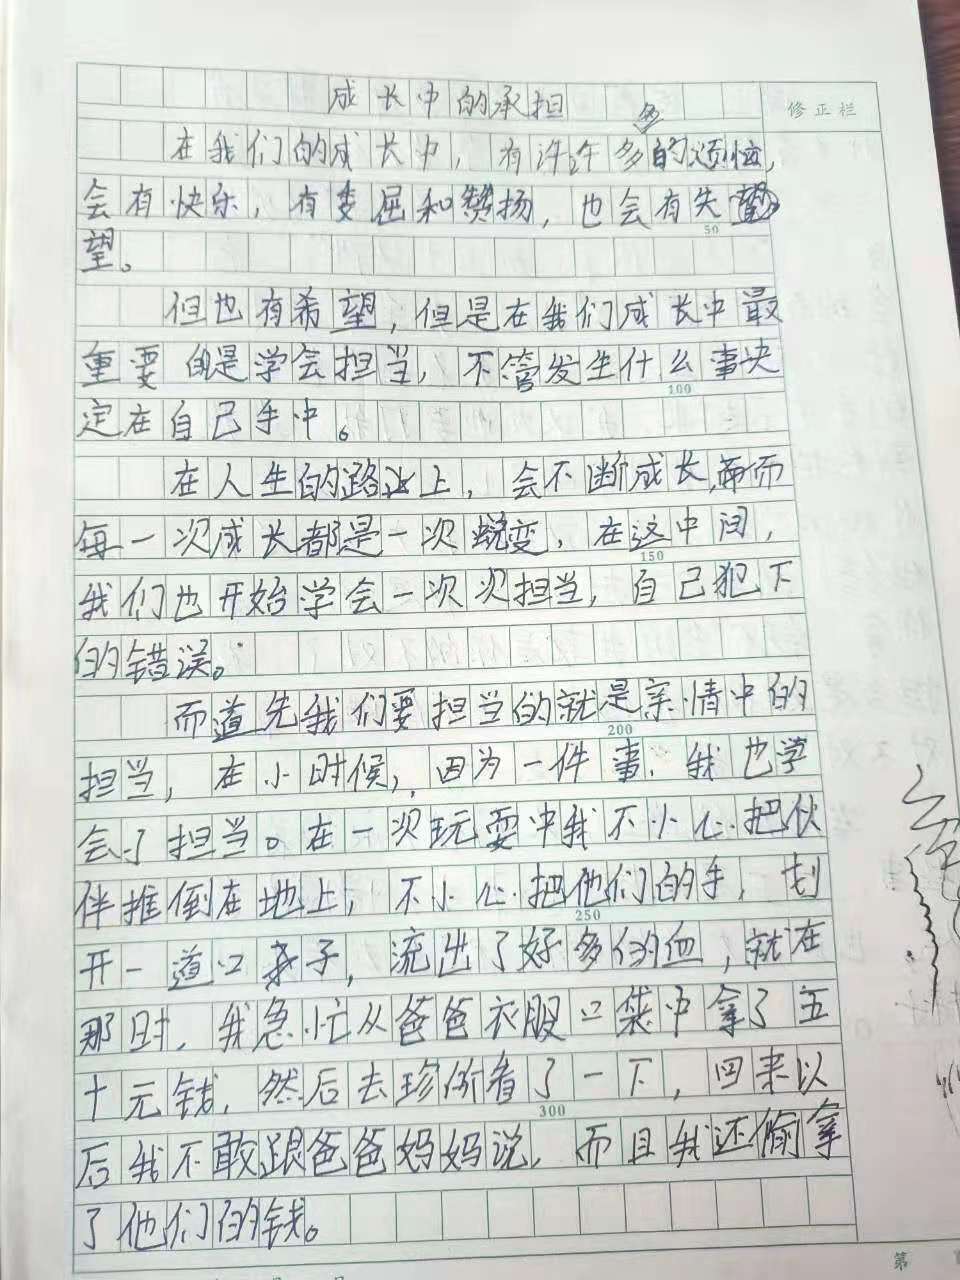 成长中的承担
修正栏
多
在我们的成长中，有许许多的烦恼，
会有快乐，有委屈和赞扬，也会有失
50
望。
但也有希望，但是在我们成长中最
重要的是学会担当，不管发生什么事决
100
定在自己手中。
在人生的路上，会不断成长，而
每一次成长都是一次蜕变，在这中间，
150
我们也开始学会一次次担当，自己犯下
的错误。
而道先我们要担当的就是亲情中的
200
担当，在小时候，因为一件事，我也学
会了担当。在一次玩耍中我不小心把伙
伴推倒在地上，不小心把他们的手，划
250
开一道口子，流出了好多的血，就在
那时，我急忙从爸爸衣服口袋中拿了五
十元钱，然后去珍所看了一下，回来以
300
后我不敢跟爸爸妈妈说，而且我还偷拿
了他们的钱。
第